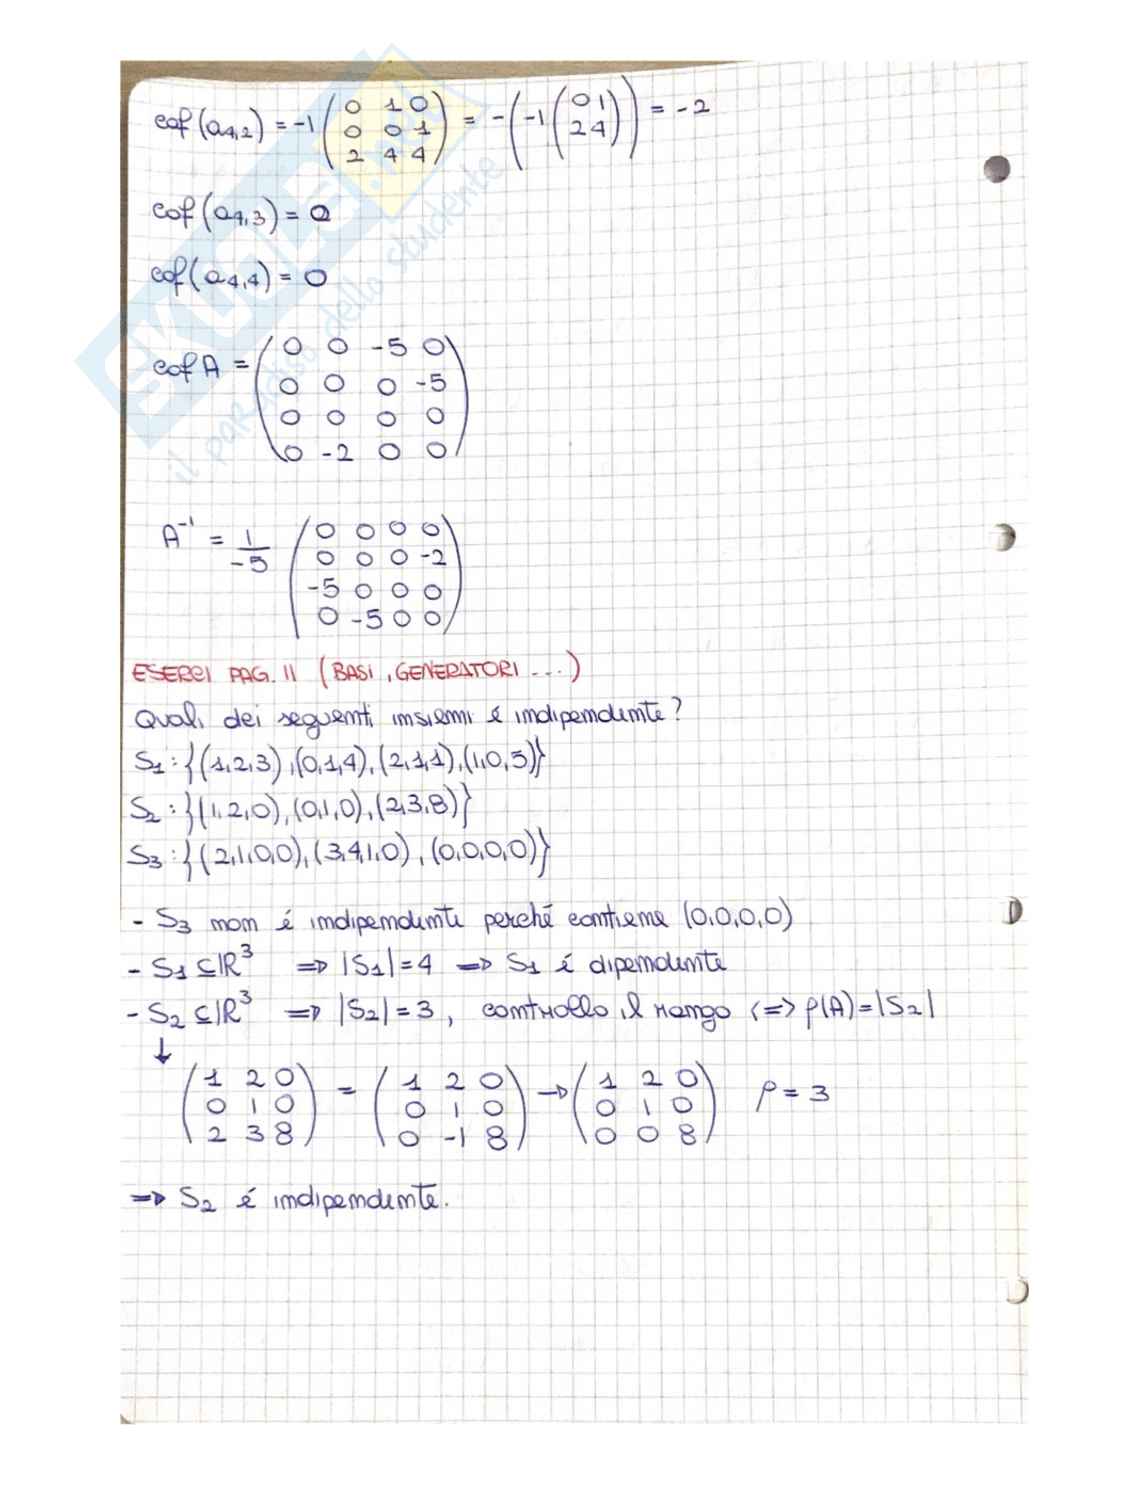 cof(a4,2) = -1 (0 1 0 / 0 0 1 / 2 4 4) = -(-1 (0 1 / 2 4)) = -2
cof(a4,3) = 0
cof(a4,4) = 0
cof A = (0 0 -5 0 / 0 0 0 -5 / 0 0 0 0 / 0 -2 0 0)
A⁻¹ = 1/-5 (0 0 0 0 / 0 0 0 -2 / -5 0 0 0 / 0 -5 0 0)
ESERCI PAG. 11 (BASI, GENERATORI ...)
Quali dei seguenti insiemi é indipendente?
S1 : {(1,2,3),(0,1,4),(2,1,1),(1,0,5)}
S2 : {(1,2,0),(0,1,0),(2,3,8)}
S3 : {(2,1,0,0),(3,4,1,0),(0,0,0,0)}
- S3 non é indipendente perché contiene (0,0,0,0)
- S1 ⊆ ℝ³ ⇒ |S1| = 4 ⇒ S1 é dipendente
- S2 ⊆ ℝ³ ⇒ |S2| = 3, controllo il rango <=> ρ(A) = |S2|
↓
(1 2 0 / 0 1 0 / 2 3 8) = (1 2 0 / 0 1 0 / 0 -1 8) → (1 2 0 / 0 1 0 / 0 0 8) ρ = 3
⇒ S2 é indipendente.
SKUOLA.net
il paradiso dello studente